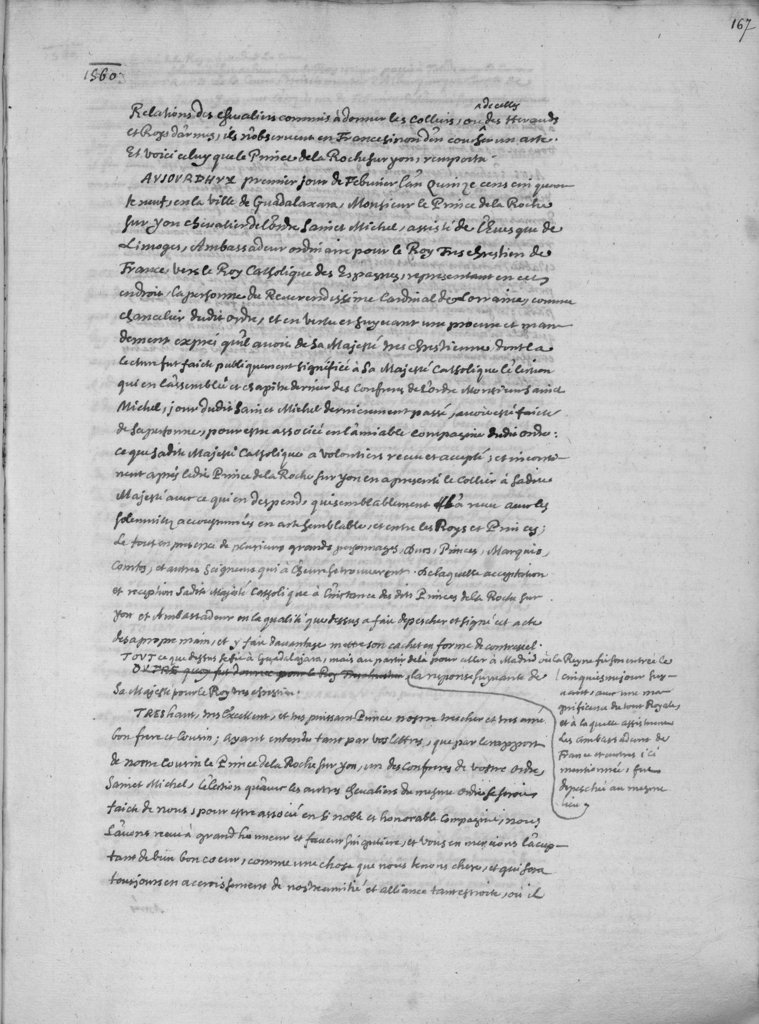 167
1560.
Relations des chevaliers commis à donner les Colliers, ou des Herauds
^ de celles
et Roys d'armes, ils n'observent en France sinon d'en coucher un acte.
Et voici celuy que le Prince de la Roche sur yon, remporta.
AUJOURDHUY premier jour de Febvrier l'an Quinze cens cinquan-
te neuf, en la ville de Guadalaxara, Monsieur le Prince de la Roche
sur yon chevalier de l'ordre Sainct Michel, assisté de l'Evesque de
Limoges, Ambassadeur ordinaire pour le Roy Treschrestien de
France, vers le Roy Catholique des Espagnes, representant en cest
endroit, la personne du Reverendissime Cardinal de Lorraine, comme
chancelier dudit ordre, et en vertu et suyvant une procure et man-
dement expres qu'il avoit de Sa Majesté treschrestienne dont la
lecture fut faicte publiquement signifiée à Sa Majesté Catholique l'election
qui en l'assemblée et chapitre dernier des Confreres de l'ordre Monsieur Sainct
Michel, jour dudit Sainct Michel dernierement passé, avoit esté faicte
de sa personne, pour estre associé en l'amiable compagnie dudit ordre:
ce que sadite Majesté Catholique a volontiers receu et accepté; et inconti-
nent apres ledit Prince de la Roche sur yon en a presenté le Collier à sadite
Majesté avec ce qui en despend, qui semblablement l'a receu avec les
solemnitez accoustumées en acte semblable, et entre les Roys et Princes;
Le tout en presence de plusieurs grands personnages, Ducs, Princes, Marquis,
Comtes, et autres Seigneurs qui à l'heure se trouverent. De laquelle acceptation
et reception Sadite Majesté Catholique à l'instance des dits Princes de la Roche sur
yon et Ambassadeur en la qualité que dessus a fait depescher et signé cet acte
de sa propre main, et y fait davantage mettre son cachet en forme de contresel.
TOUT ce que dessus se fit à Guadalajara, mais au partir de là pour aller à Madrid où la Reyne fit son entrée le
cinquiesme jour suy-
vant, avec une ma-
gnificence du tout Royale,
et à laquelle assisterent
les Ambassadeurs de
France et autres ici
mentionnés, fut
depesché au mesme
lieu
OUTRE quoy fut donnée pour le Roy la response suyvante de
Sa Majesté pour le Roy tres chrestien.
TRES haut, tres excellent, et tres puissant Prince nostre trescher et tres amé
bon frere et Cousin; ayant entendu tant par vos lettres, que par le rapport
de nostre Cousin le Prince de la Roche sur yon, un des Confreres de vostre ordre
Sainct Michel, l'election qu'avec les autres chevaliers du mesme ordre se seroit
faicte de nous, pour estre associé en si noble et honorable Compagnie, nous
l'avons receu à grand honneur et faveur singuliere, et vous en mercions l'accep-
tant de bien bon coeur, comme une chose que nous tenons chere, et qui sera
tousjours en accroissement de nostre amitié et alliance tant estroite, où il